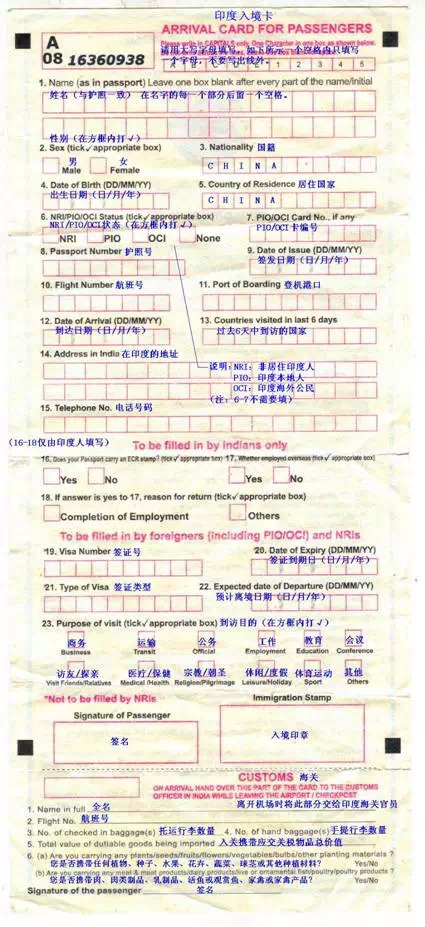 印度入境卡
ARRIVAL CARD FOR PASSENGERS
A
08 16360938
Please write in CAPITALS only. One Character in one box as shown below.
请用大写字母填写。如下所示，一个空格内只填写
一个字母，不要写出线外。
A B C D E 1 2 3 4 5
1. Name (as in passport) Leave one box blank after every part of the name/initial
姓名（与护照一致） 在名字的每一个部分后留一个空格。
性别（在方框内打√）
2. Sex (tick✓appropriate box) 3. Nationality 国籍
男 女 C H I N A
Male Female
4. Date of Birth (DD/MM/YY) 5. Country of Residence 居住国家
出生日期（日/月/年） C H I N A
6. NRI/PIO/OCI Status (tick✓appropriate box) 7. PIO/OCI Card No., if any
NRI/PIO/OCI状态（在方框内打√） PIO/OCI卡编号
NRI PIO OCI None
8. Passport Number 护照号 9. Date of Issue (DD/MM/YY)
签发日期（日/月/年）
10. Flight Number 航班号 11. Port of Boarding 登机港口
12. Date of Arrival (DD/MM/YY) 13. Countries visited in last 6 days
到达日期（日/月/年） 过去6天中到访的国家
14. Address in India 在印度的地址
说明：NRI: 非居住印度人
PIO: 印度本地人
OCI: 印度海外公民
（注：6-7不需要填）
15. Telephone No. 电话号码
（16-18仅由印度人填写） To be filled in by Indians only
16. Does your Passport carry an ECR stamp? (tick✓ appropriate box) 17. Whether employed overseas (tick✓ appropriate box)
Yes No Yes No
18. If answer is yes to 17, reason for return (tick✓appropriate box)
Completion of Employment Others
To be filled in by foreigners (including PIO/OCI) and NRIs
*19. Visa Number 签证号 *20. Date of Expiry (DD/MM/YY)
签证到期日（日/月/年）
*21. Type of Visa 签证类型 22. Expected date of Departure (DD/MM/YY)
预计离境日期（日/月/年）
23. Purpose of visit (tick✓appropriate box) 到访目的（在方框内打√）
商务 运输 公务 工作 教育 会议
Business Transit Official Employment Education Conference
访友/探亲 医疗/保健 宗教/朝圣 休闲/度假 体育运动 其他
Visit Friends/Relatives Medical /Health Religion/Pilgrimage Leisure/Holiday Sport Others
*Not to be filled by NRIs Immigration Stamp
Signature of Passenger
签名 入境印章
CUSTOMS 海关
ON ARRIVAL HAND OVER THIS PART OF THE CARD TO THE CUSTOMS
OFFICER IN INDIA WHILE LEAVING THE AIRPORT / CHECKPOST
离开机场时将此部分交给印度海关官员
1. Name in full 全名
2. Flight No. 航班号
3. No. of checked in baggage(s) 托运行李数量 4. No. of hand baggage(s) 手提行李数量
5. Total value of dutiable goods being imported 入关携带应交关税物品总价值
6. (a) Are you carrying any plants/seeds/fruits/flowers/vegetables/bulbs/other planting materials ?
您是否携带任何植物、种子、水果、花卉、蔬菜、球茎或其他种植材料? Yes/No
(b) Are you carrying any meat & meat products/dairy products/live or ornamental fish/poultry/poultry products ?
您是否携带肉、肉类制品、乳制品、活鱼或观赏鱼、家禽或家禽产品? Yes/No
Signature of the passenger 签名